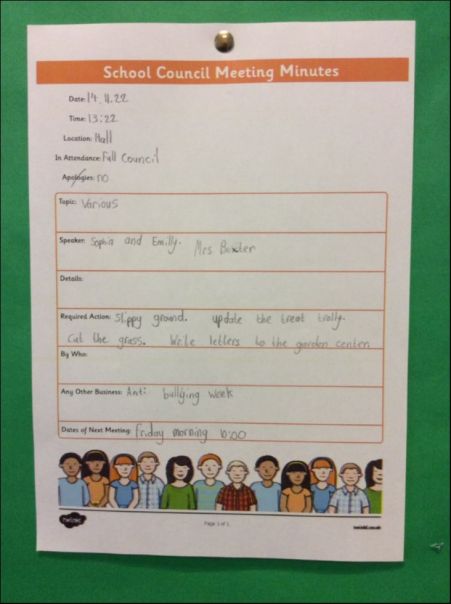 School Council Meeting Minutes
Date: 14.11.22
Time: 13:22
Location: Hall
In Attendance: Full Council
Apologies: no
Topic: Various
Speaker: Sophia and Emily. Mrs Baxter
Details:
Required Action: Slippy ground. update the treat trolly.
Cut the grass. Write letters to the garden center
By Who:
Any Other Business: Anti bullying week
Dates of Next Meeting: Friday morning 10:00
twinkl
Page 1 of 1
twinkl.co.uk